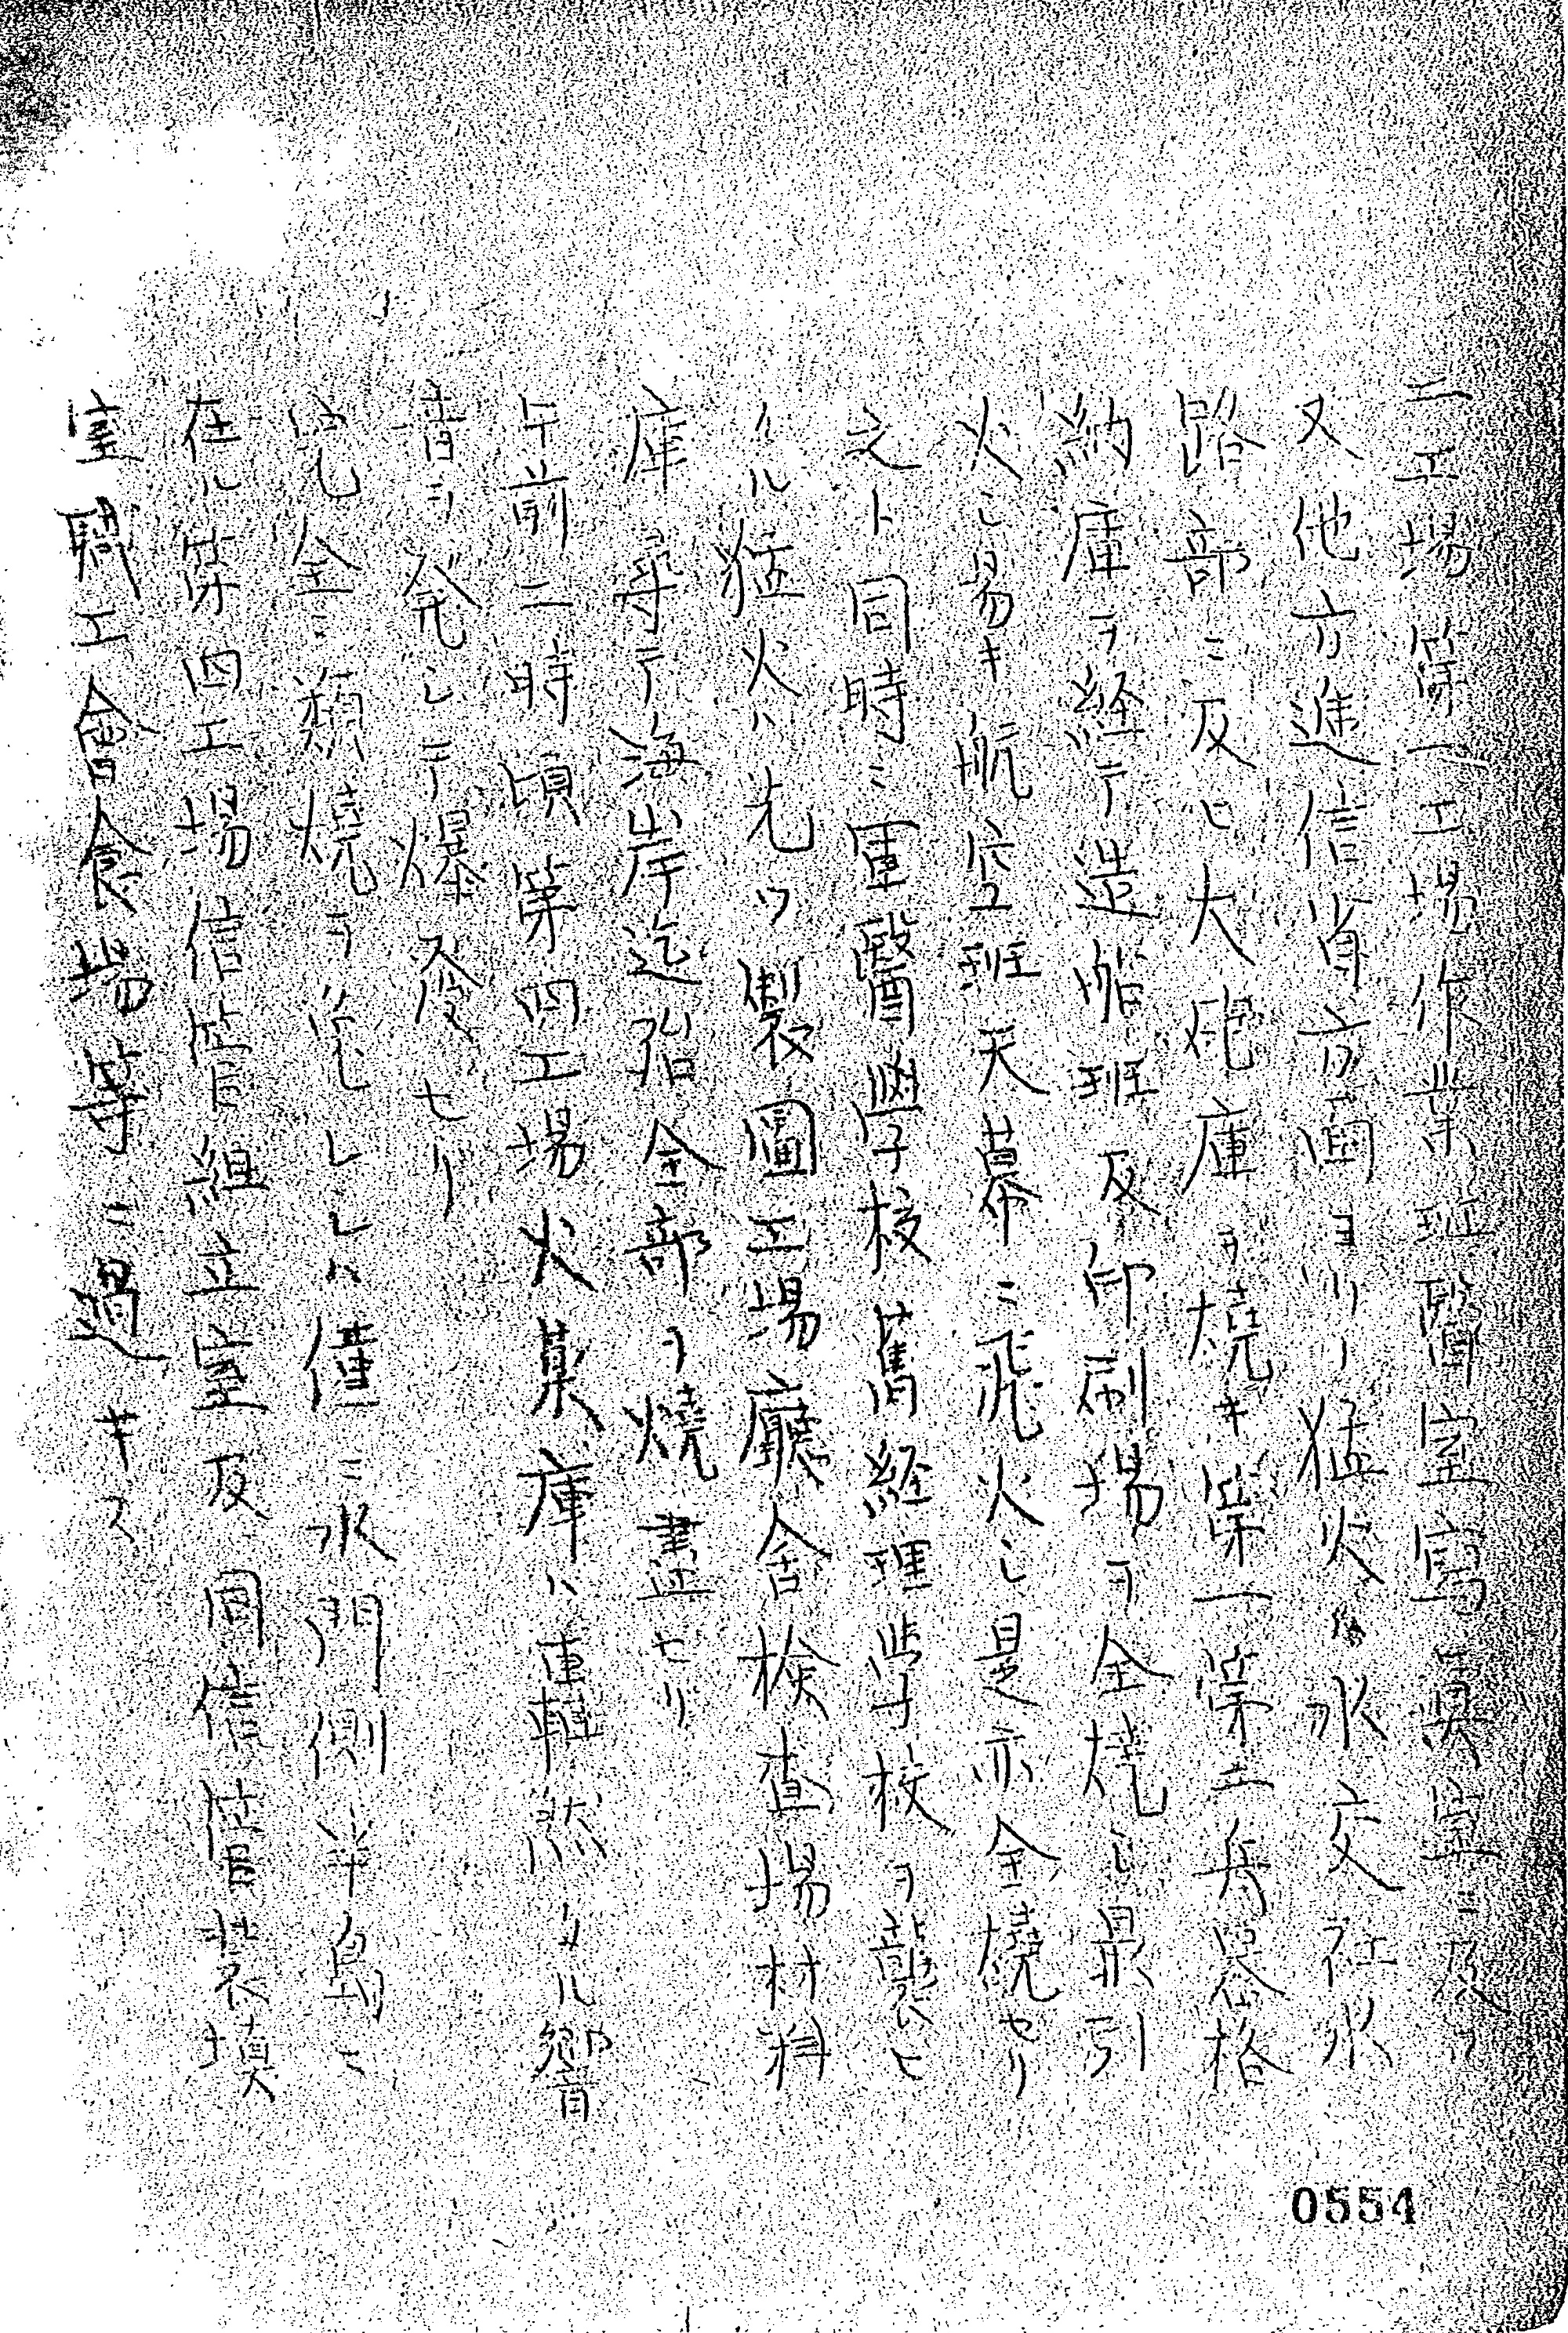 二工場第一工場作業班醫室寫眞室ニ及フ
又他方逓信省方面ヨリノ猛火ハ水交社水
路部ニ及ヒ大砲庫ヲ焼キ第一第二兵器格
納庫ヲ経テ造船班及印刷場ヲ全焼シ最引
火シ易キ航空班天幕ニ飛火シ是亦全焼セリ
之ト同時ニ軍醫學校舊経理学校ヲ襲ヒ
タル猛火ハ先ツ製圖工場廳舎検査場材料
庫等ヨリ海岸迄殆全部ヲ焼盡セリ
午前二時頃第四工場火薬庫ハ轟然タル響
音ヲ発シテ爆發セリ
完全ニ類焼ヲ免レシハ僅ニ水門側半島ニ
在ル第四工場信管組立室及同信管装填
室鬪工會食場等ニ過キス
0554